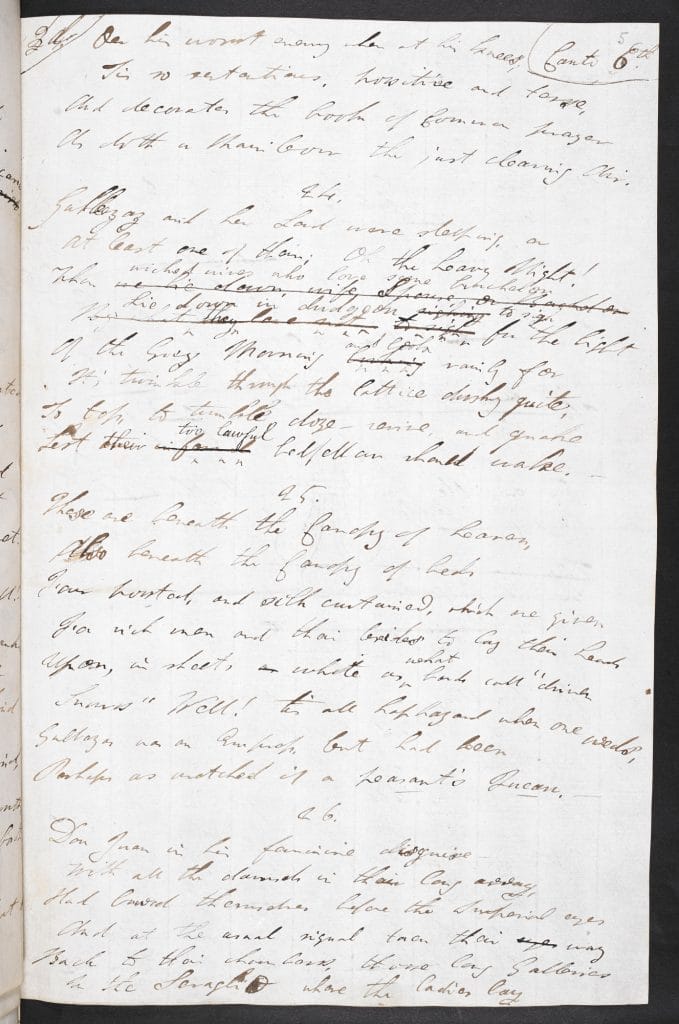 On his worst enemy when at his knees,
Canto 6th
5
Tis so sententious, positive and terse,
And decorates the book of Common Prayer
As doth a Rainbow the just clearing Air.
24.
Gulbeyaz and her Lord were sleeping, or
At least one of them; Oh the heavy Night!
wicked wives who love some bachelor
When we lie down, wife, Spouse, or Bachelor
Lie down in dudgeon to sigh for the light
Of the Grey Morning vainly for
Its twinkle through the lattice dusky quite,
To toss, to tumble, doze, revive, and quake
too lawful
Lest their bedfellow should wake.
25.
These are beneath the Canopy of heaven,
Also beneath the Canopy of beds
Four posted, and silk curtained, which are given
For rich men and their brides to lay their heads
Upon, in sheets white as what bards call "driven
Snow" Well! tis all haphazard when one weds,
Gulbeyaz was an Empress, but had been
Perhaps as wretched if a peasant's Quean.
26.
Don Juan in his feminine disguise
With all the damsels in their long array,
Had bowed themselves before the Imperial eyes
And at the usual signal taen their way
Back to their chambers, those long Galleries
In the Seraglio where the ladies lay